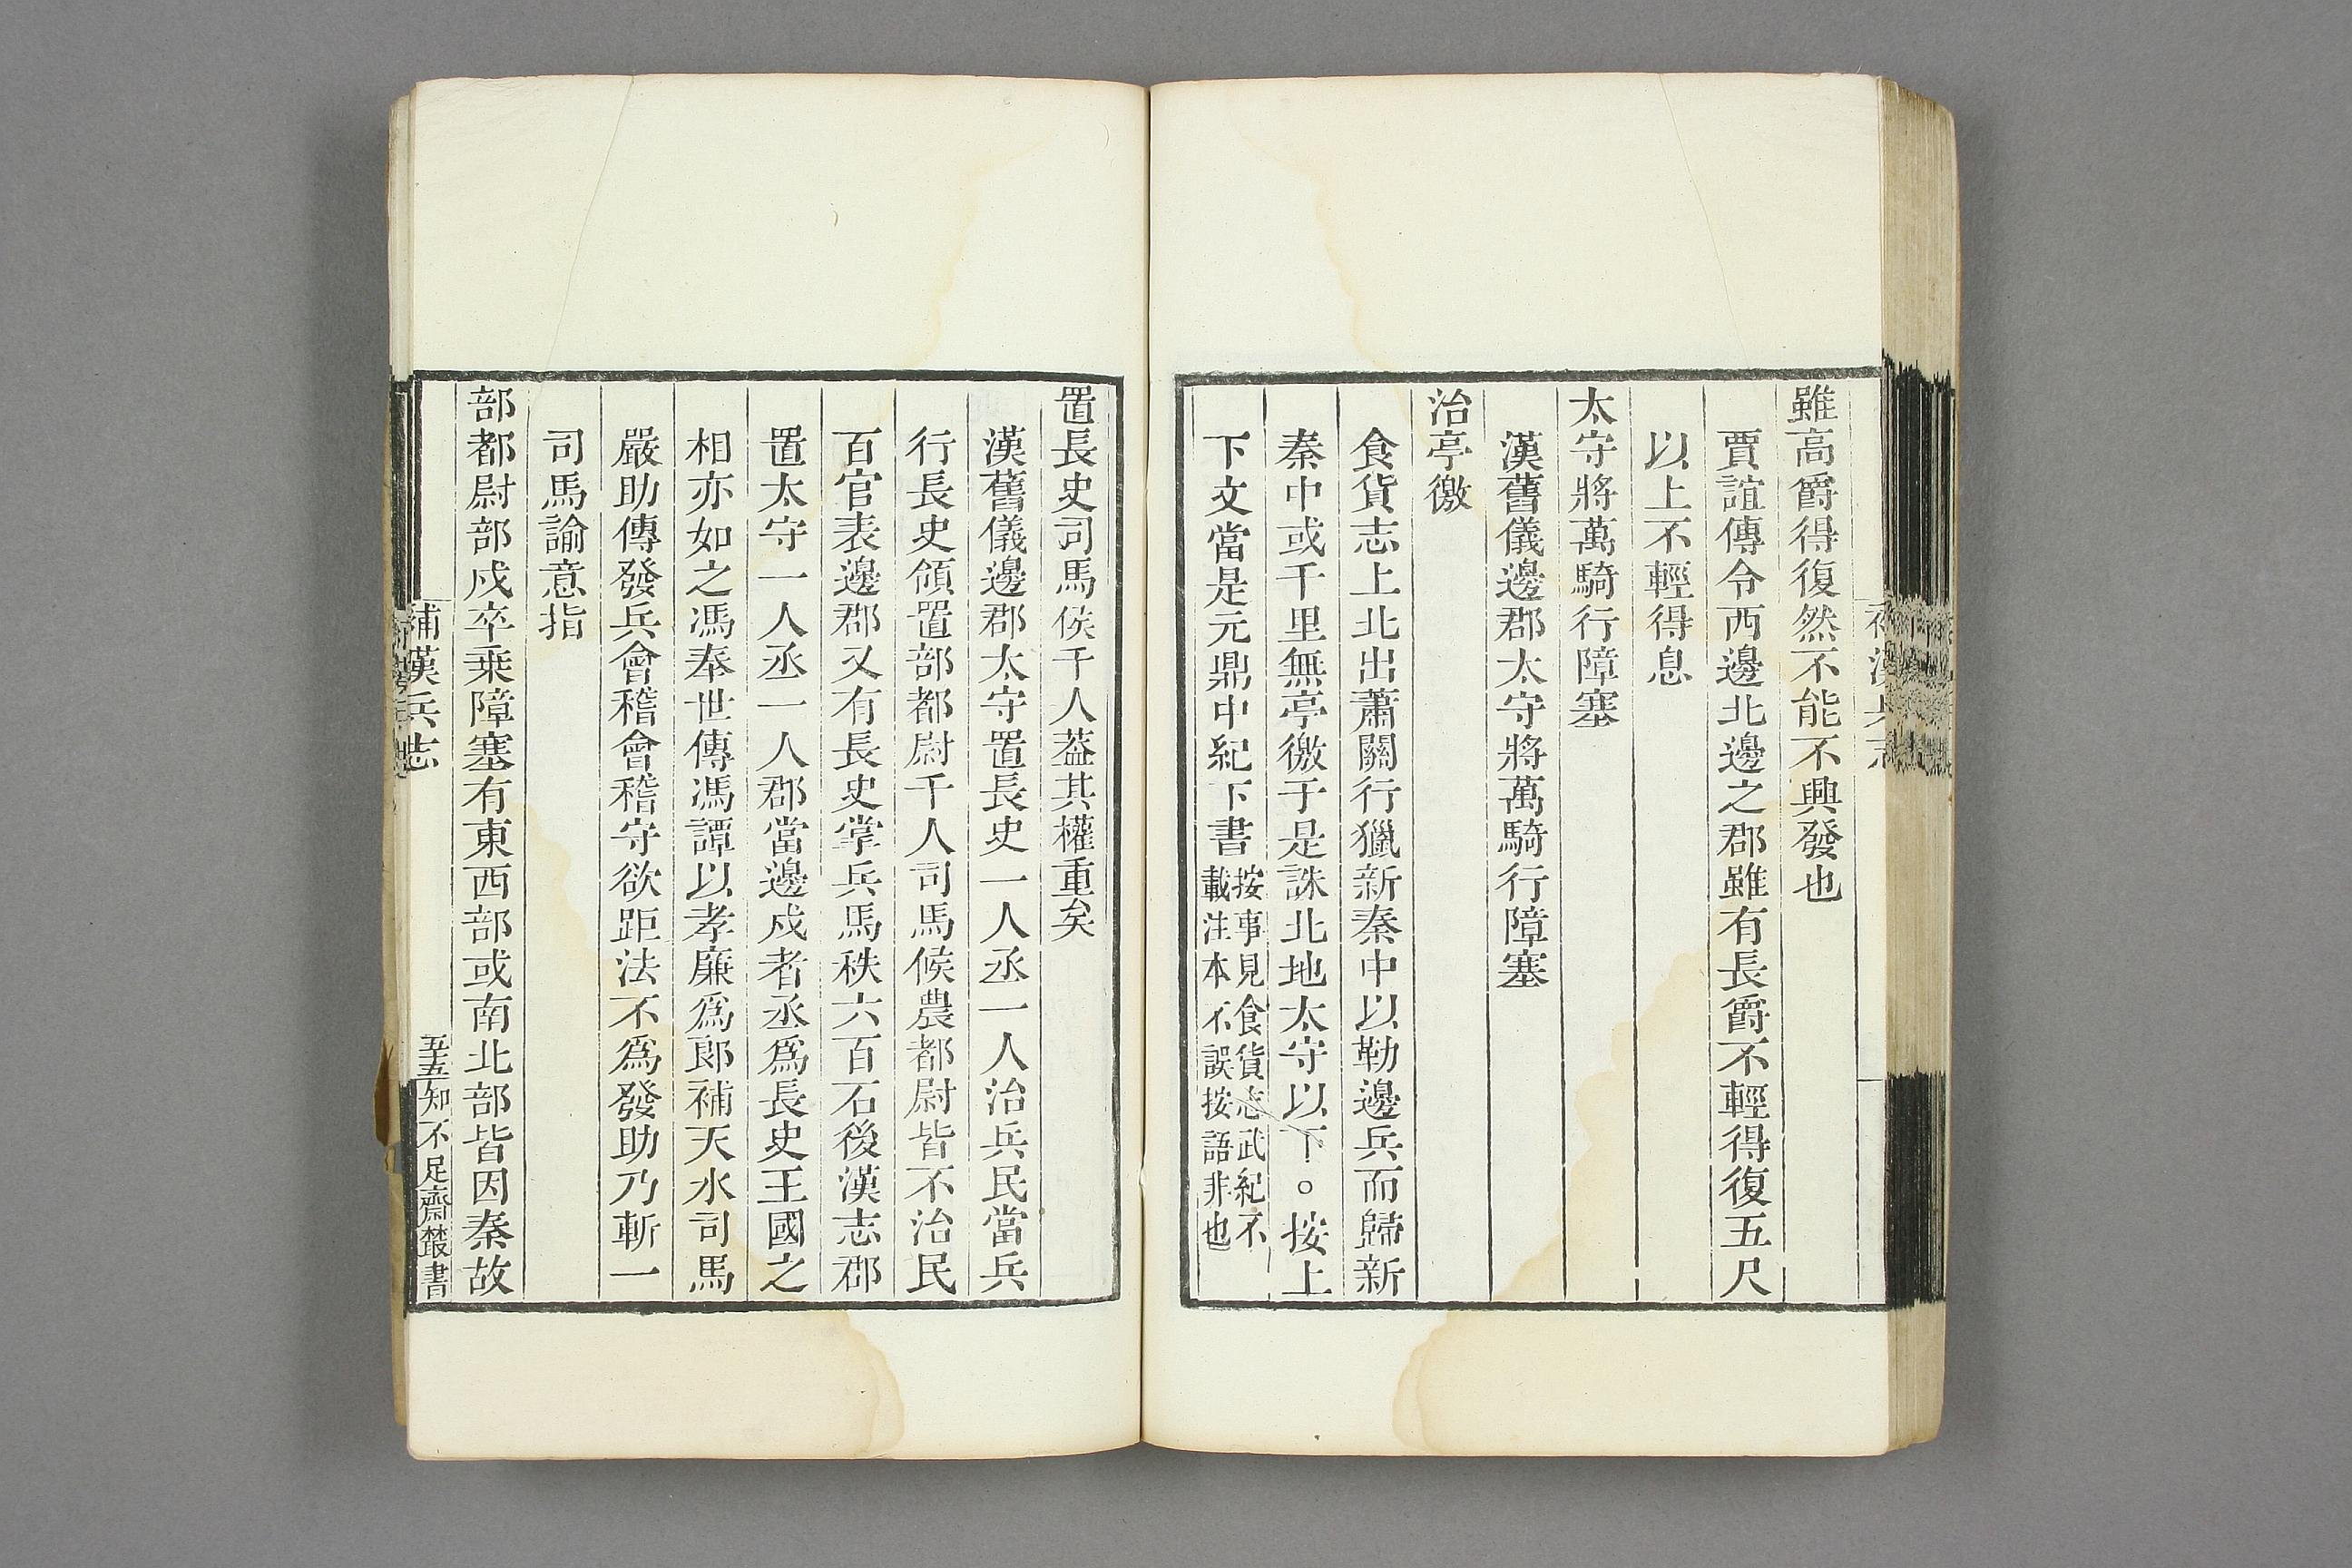 雖高爵得復然不能不興發也
賈誼傳令西邊北邊之郡雖有長爵不輕得復五尺
以上不輕得息
太守將萬騎行障塞
漢舊儀邊郡太守將萬騎行障塞
治亭徼
食貨志上北出蕭關行獵新秦中以勒邊兵而歸新
秦中或千里無亭徼于是誅北地太守以下○按上
下文當是元鼎中紀下書
按事見食貨志武紀不
載注本不誤按語非也
置長史司馬侯千人葢其權重矣
漢舊儀邊郡太守置長史一人丞一人治兵民當兵
行長史領置部都尉千人司馬候農都尉皆不治民
百官表邊郡又有長史掌兵馬秩六百石後漢志郡
置太守一人丞一人郡當邊戍者丞爲長史王國之
相亦如之馮奉世傳馮譚以孝廉爲郎補天水司馬
嚴助傳發兵會稽會稽守欲距法不爲發助乃斬一
司馬諭意指
部都尉部戍卒乘障塞有東西部或南北部皆因秦故
補漢兵志
五十五
知不足齋叢書